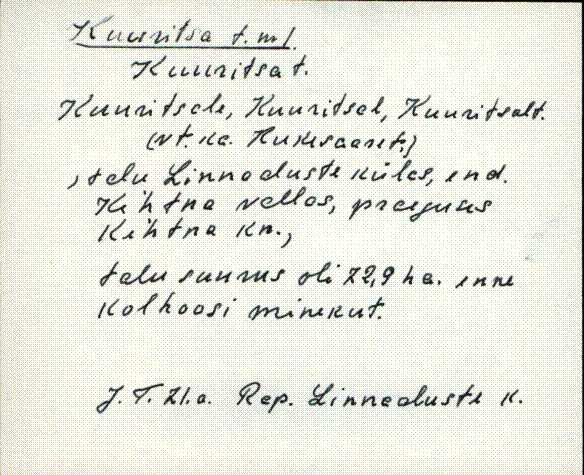 Kuuritsa t. ml.
Kuuritsa t.
Kuuritsale, Kuuritsal, Kuuritsalt.
(vt. ka. Hukesaaret.)
, talu Linnaaluste külas, end.
Kehtna vallas, praeguses
Kehtna kn.,
talu suurus oli 72,9 ha. enne
kolhoosi minekut.
J. T. 71.a. Rap. Linnaaluste k.